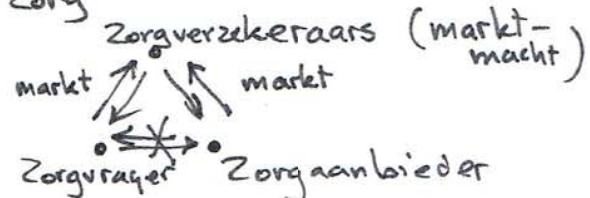 Zorg
Zorgverzekeraars (markt-
macht)
markt markt
Zorgvrager Zorgaanbieder